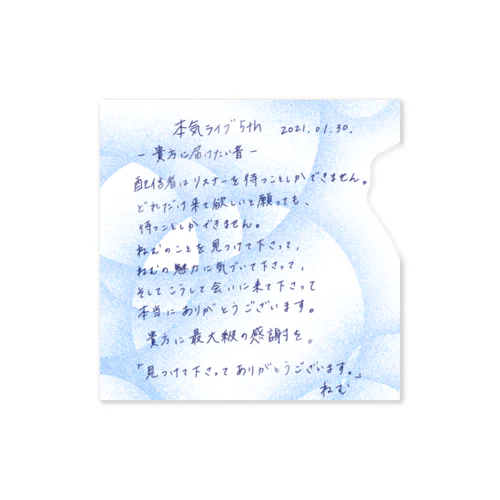 本気ライブ5th 2021.01.30.
ー貴方に届けたい音ー
配信者はリスナーを待つことしかできません。
どれだけ来て欲しいと願っても、
待つことしかできません。
ねむのことを見つけて下さって、
ねむの魅力に気づいて下さって、
そしてこうして会いに来て下さって
本当にありがとうございます。
貴方に最大級の感謝を。
「見つけて下さってありがとうございます。」
ねむ